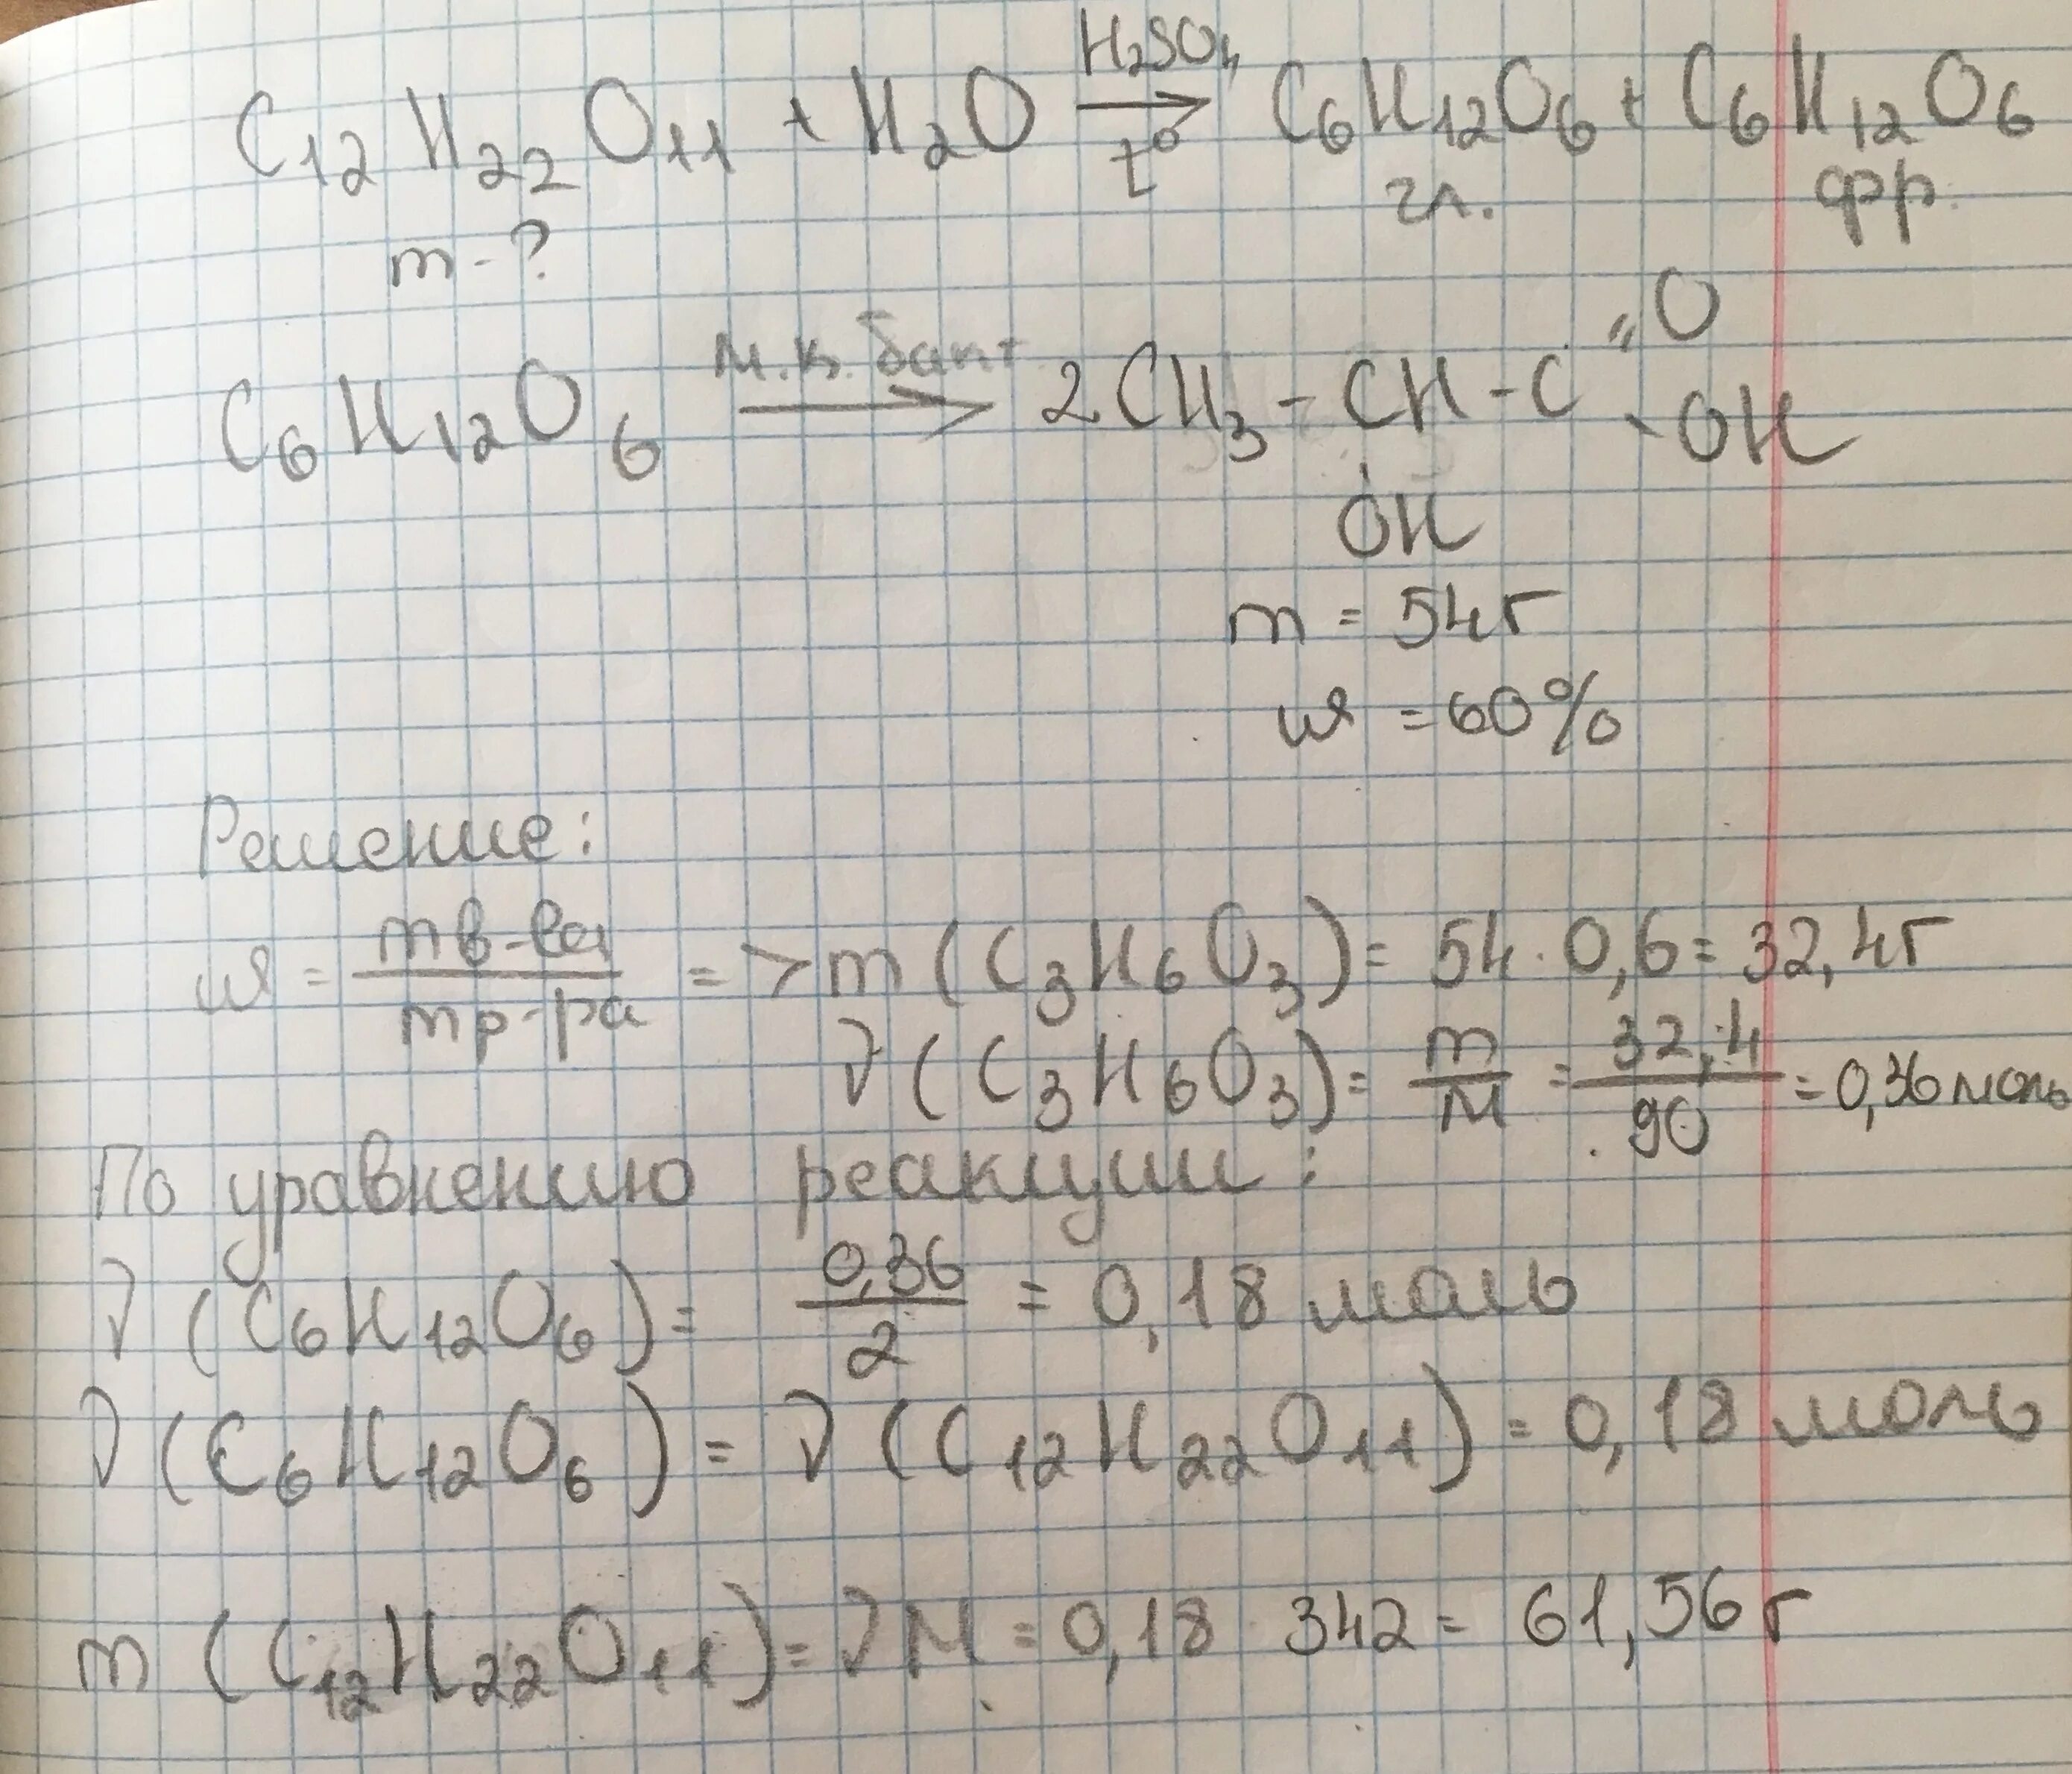 C₁₂H₂₂O₁₁ + H₂O →(H₂SO₄, t°) C₆H₁₂O₆ + C₆H₁₂O₆
m-? гл. фр.
C₆H₁₂O₆ →(м.к. бакт.) 2CH₃-CH-C=O
-OH
OH
m = 54г
ω = 60%
Решение:
ω = mв-ва/mр-ра => m(C₃H₆O₃) = 54·0,6 = 32,4г
ν(C₃H₆O₃) = m/M = 32,4/90 = 0,36 моль
По уравнению реакции:
ν(C₆H₁₂O₆) = 0,36/2 = 0,18 моль
ν(C₆H₁₂O₆) = ν(C₁₂H₂₂O₁₁) = 0,18 моль
m(C₁₂H₂₂O₁₁) = νM = 0,18 · 342 = 61,56г